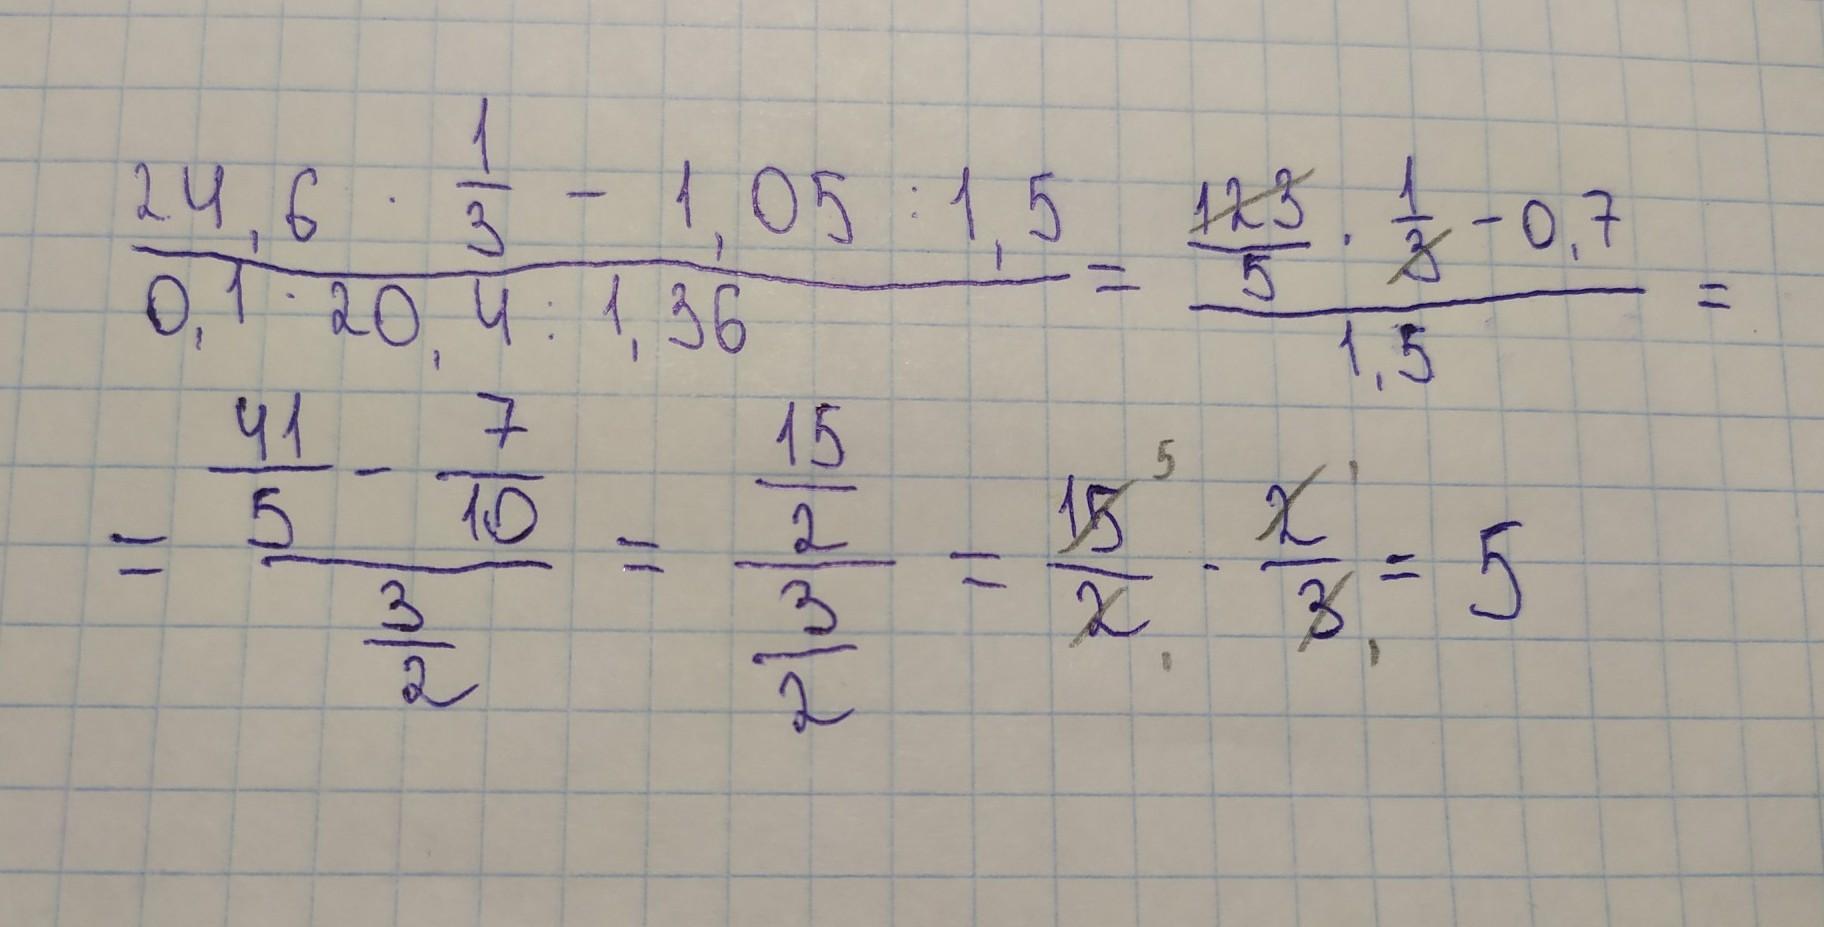 24,6 · 1/3 − 1,05 : 1,5 / 0,1 · 20,4 : 1,36 = 123/5 · 1/3 − 0,7 / 1,5 =
= 41/5 − 7/10 / 3/2 = 15/2 / 3/2 = 15 5/2 1 · 2 1/3 1 = 5